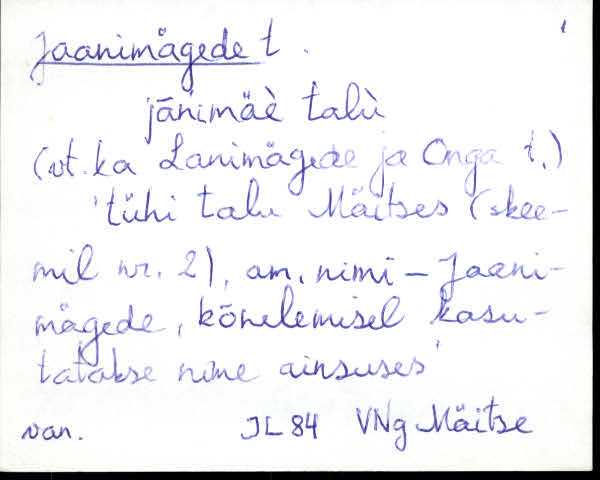 Jaanimägede t.
jānimäè talù
(vt. ka Lanimägede ja Onga t.)
'tühi talu Mäitses (skee-
mil nr. 2), am. nimi – Jaani-
mägede, kõnelemisel kasu-
tatakse nime ainsuses'
van. JL 84 VNg Mäitse